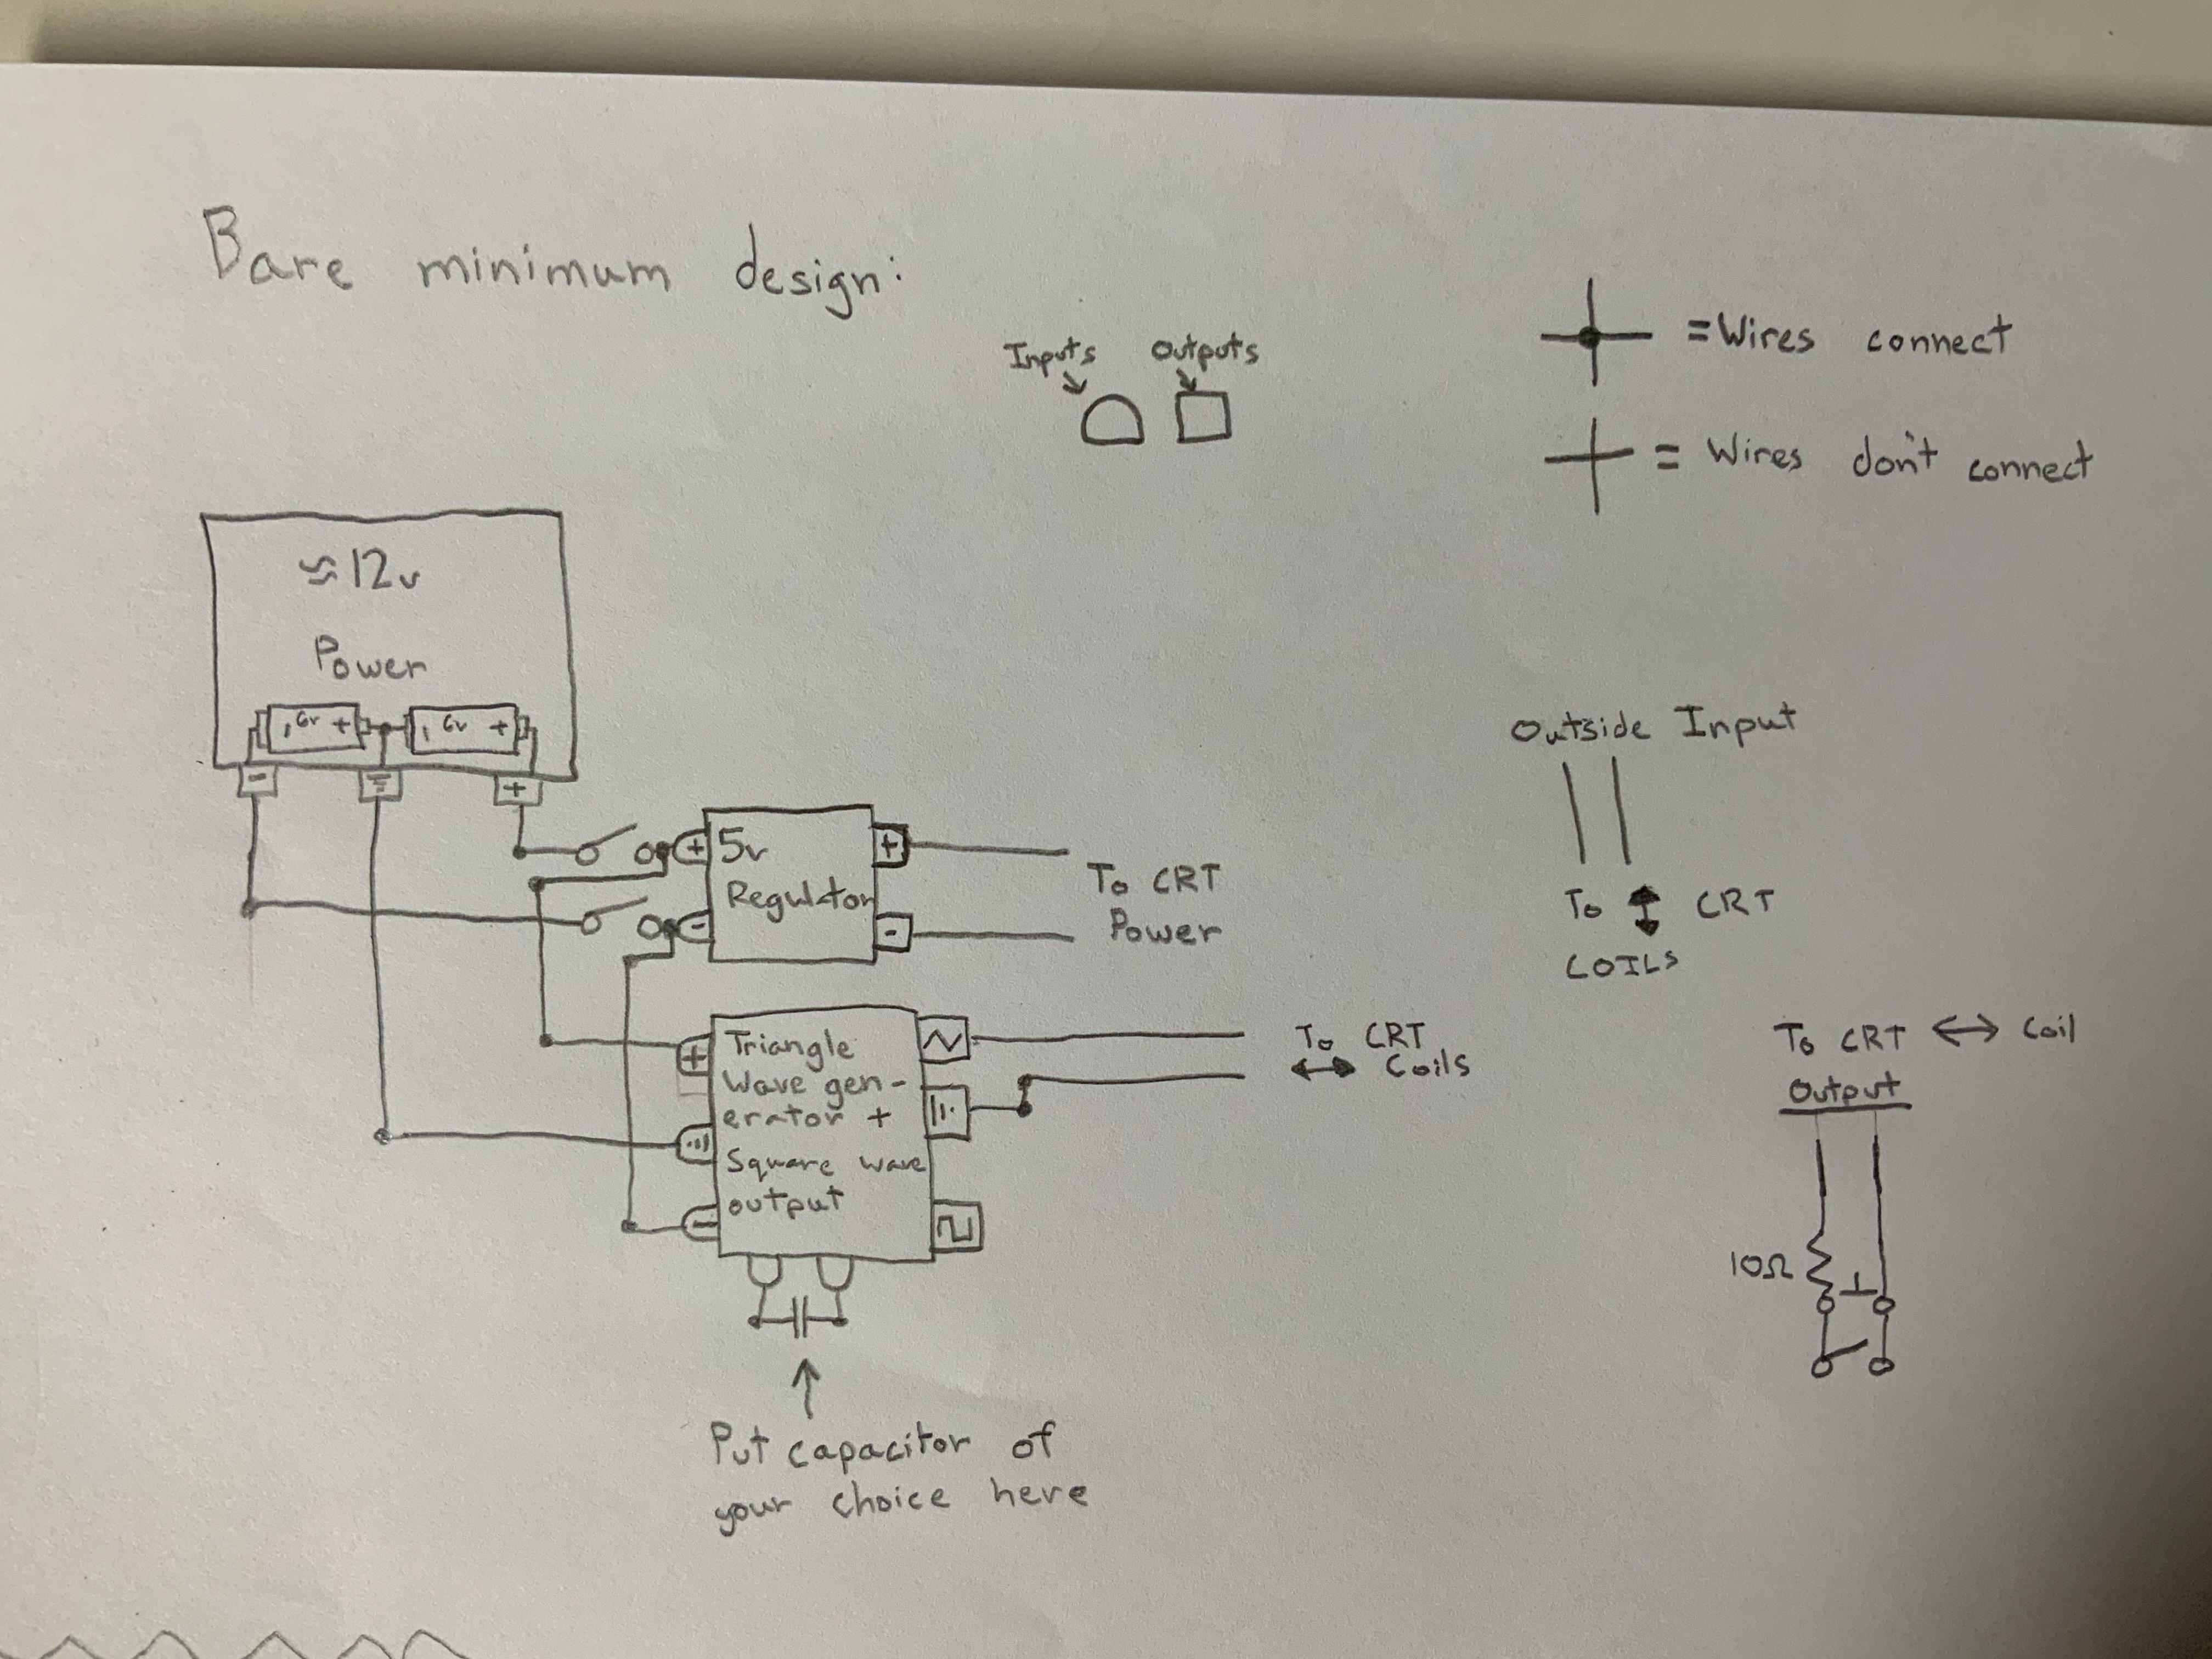 Bare minimum design:
Inputs Outputs
= Wires connect
= Wires don't connect
≈ 12v
Power
- 6v + - 6v +
- +
+ 5v +
Regulator
- -
To CRT
Power
Outside Input
To ↕ CRT
COILS
+ Triangle
Wave gen-
erator +
Square wave
- output
To CRT
↔ Coils
To CRT ↔ Coil
Output
10Ω
Put capacitor of
your choice here